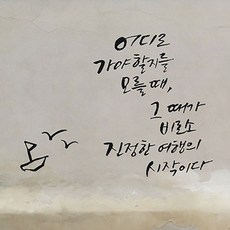 어디로
가야할지를
모를 때,
그 때가
비로소
진정한 여행의
시작이다